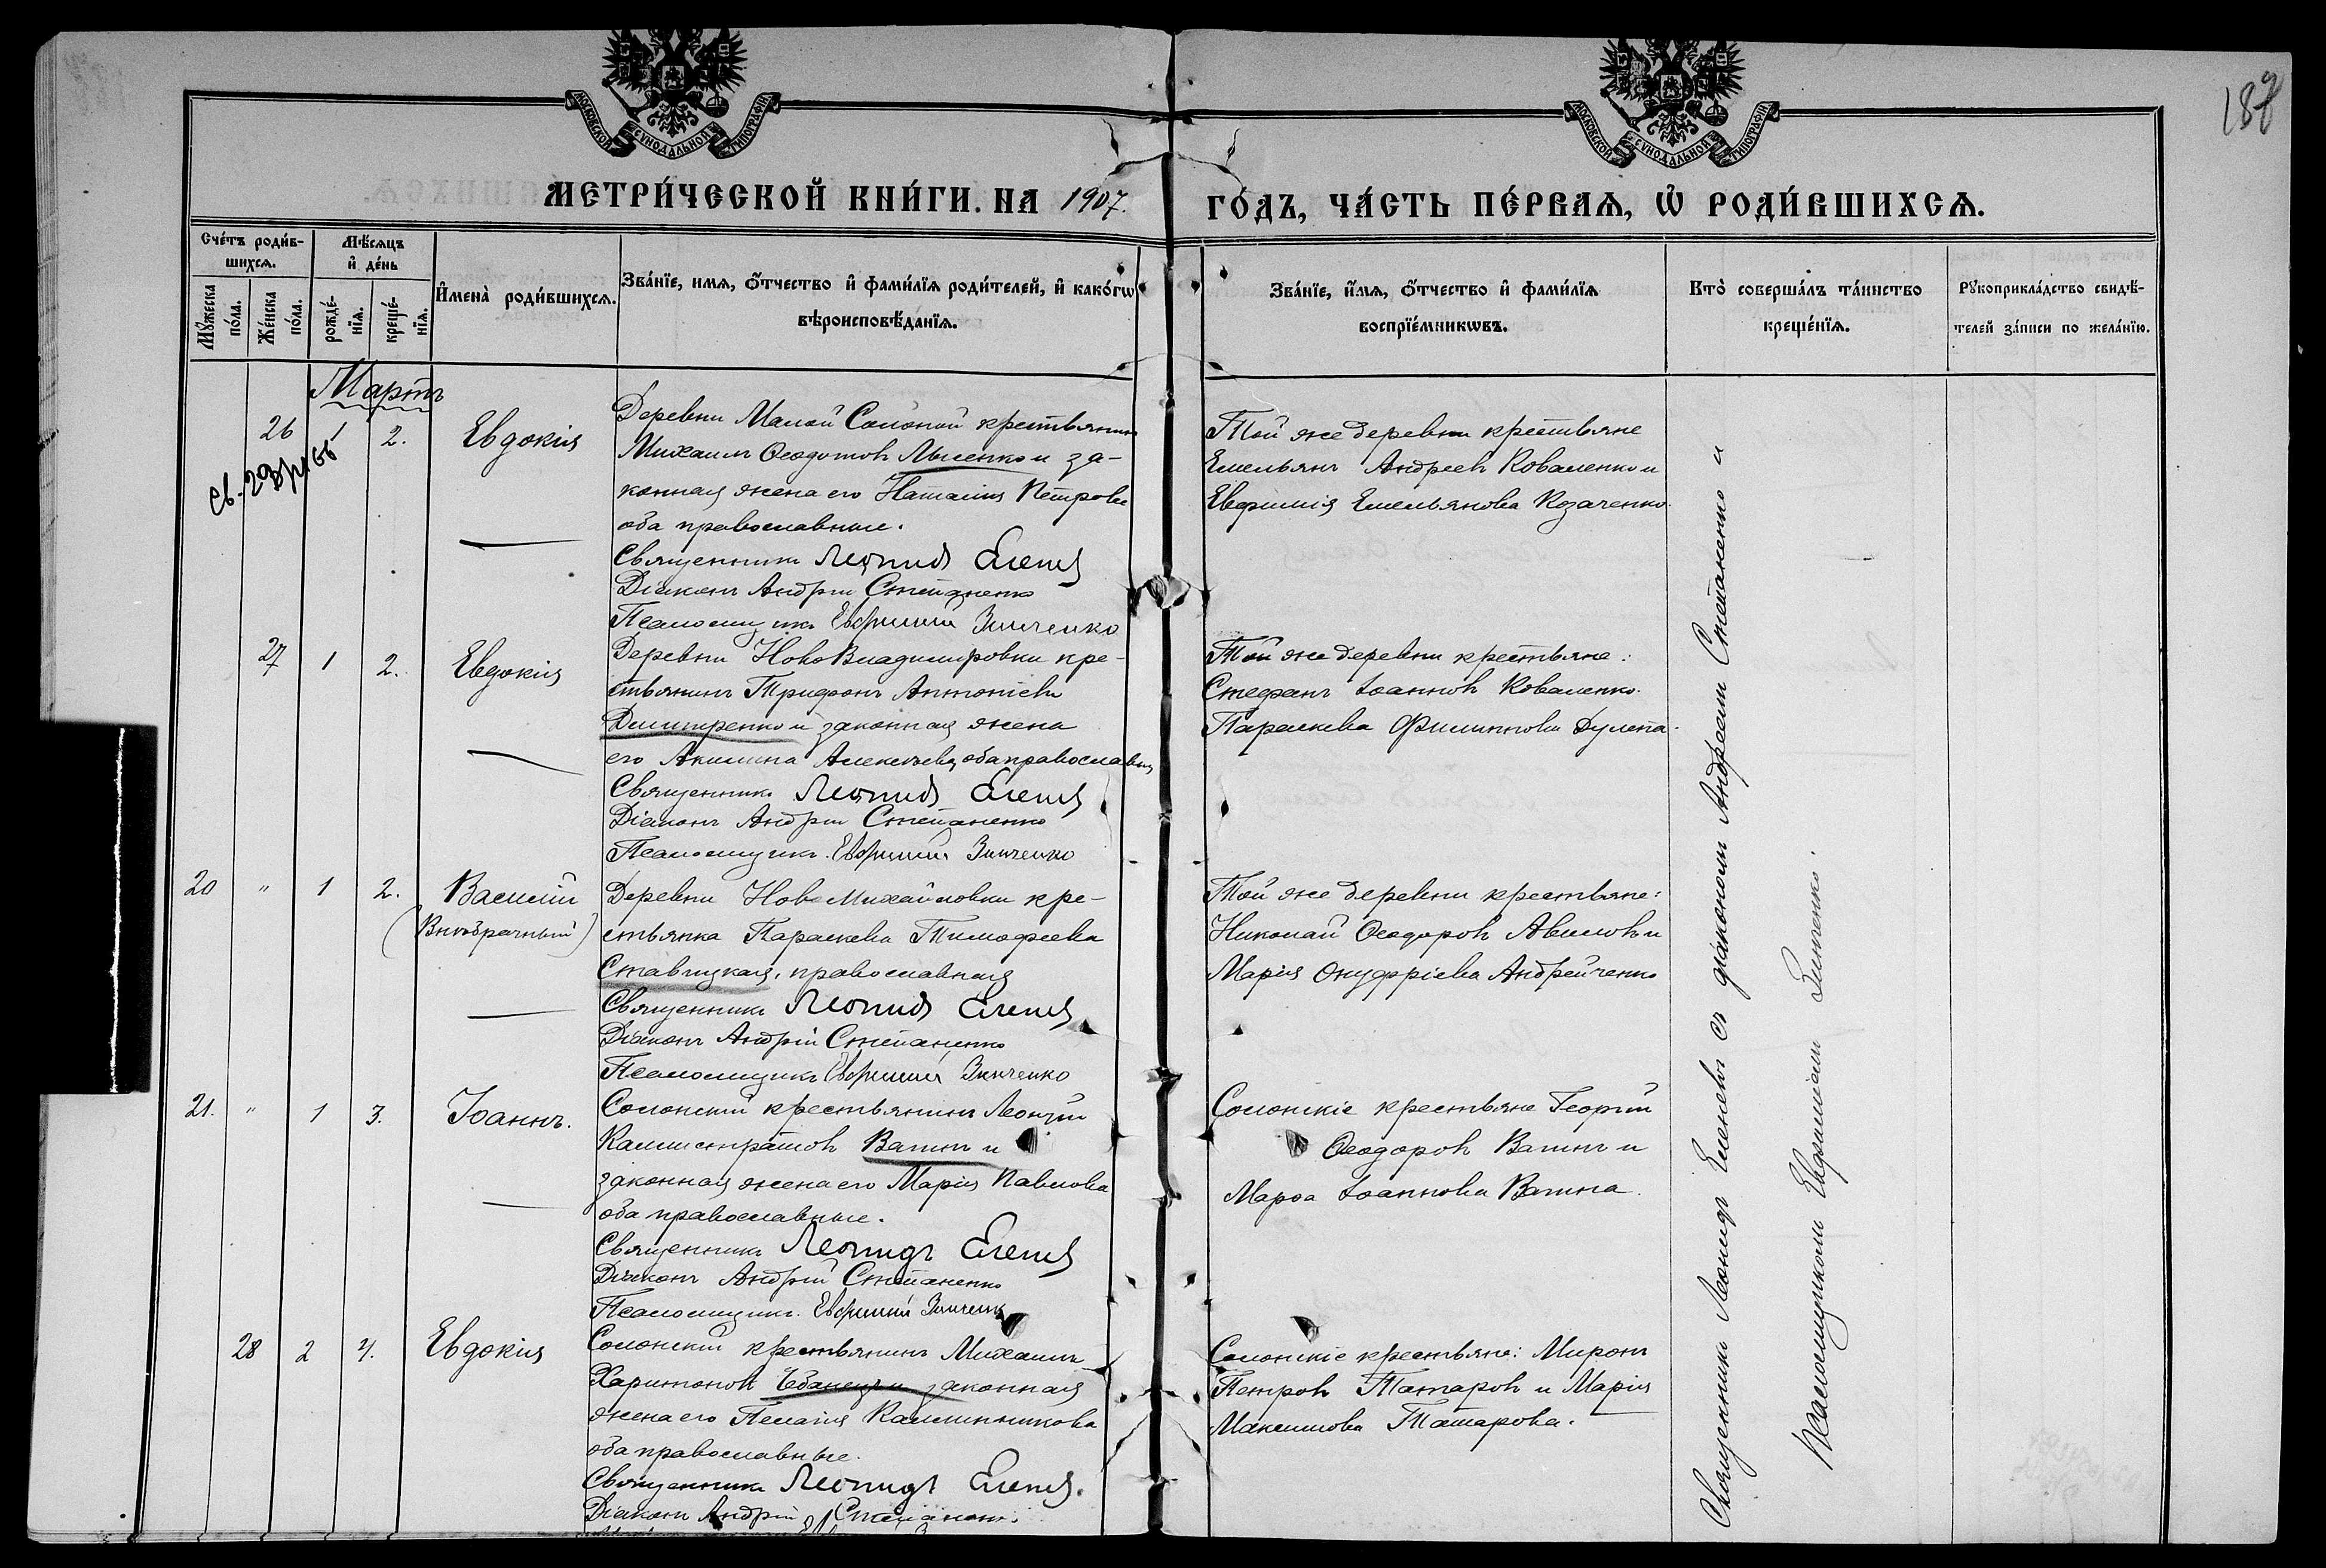 МОСКОВСКОЙ СУНОДАЛЬНОЙ ТИПОГРАФІИ
МОСКОВСКОЙ СУНОДАЛЬНОЙ ТИПОГРАФІИ
187
МЕТРИ́ЧЕСКОЙ КНИ́ГИ. НА 1907. ГО́ДЪ, ЧА́СТЬ ПЕ́РВАѦ, Ѡ҆ РОДИ́ВШИХСѦ.
Сче́тъ роди́в-
шихсѧ.
Мꙋ́жеска по́ла.
Же́нска по́ла.
Мѣ́сѧцъ и҆ де́нь
рожде́-нїѧ.
креще́-нїѧ.
И҆мена̀ роди́вшихсѧ.
Зва́нїе, имѧ, ѻ҆́тчество и҆ фами́лїѧ роди́телей, и҆ како́гѡ
вѣроисповѣ́данїѧ.
Зва́нїе, и҆́мѧ, ѻ҆́тчество и҆ фами́лїѧ
воспрїе́мникѡвъ.
Кто̀ соверша́лъ та́инство
креще́нїѧ.
Рꙋкоприкла́дство свидѣ́-
телей за́писи по жела́нїю.
Мартъ
26 1 2. Евдокія
Деревни Малой Солоной крестьянинъ
Михаилъ Ѳеодотовъ Лысенко и за-
конная жена его Наталія Петрова
оба православные.
Священникъ Леонидъ
Діаконъ Андрій Степаненко
Псаломщикъ Евфимій Зинченко
Той же деревни крестьяне
Емельянъ Андреевъ Коваленко и
Евфимія Емельянова Козаченко
27 1 2. Евдокія
Деревни НовоВладимировки кре-
стьянинъ Трифонъ Антоніевъ
Дмитренко и законная жена
его Акилина Алексѣева, оба православн
Священникъ Леонидъ
Діаконъ Андрій Степаненко
Псаломщикъ Евфимій Зинченко
Той же деревни крестьяне:
Стефанъ Іоанновъ Коваленко.
Параскева Филиппова Дулепа.
20 " 1 2. Василій
(Внѣбрачный)
Деревни Ново Михайловки кре-
стьянка Параскева Тимофеева
Ставицкая, православная
Священникъ Леонидъ
Діаконъ Андрій Степаненко
Псаломщикъ Евфимій Зинченко
Той же деревни крестьяне:
Николай Ѳеодоровъ Авиловъ и
Марія Онуфріева Андрейченко
21. " 1 3. Іоаннъ.
Солонскій крестьянинъ Леонтій
Каллистратовъ Ватинъ и
законная жена его Марія Павлова
оба православные.
Священникъ Леонидъ
Діаконъ Андрій Степаненко
Псаломщикъ Евфимій Зинченк
Солонскіе крестьяне Георгій
Ѳеодоровъ Ватинъ и
Марѳа Іоаннова Ватина.
28 2 4. Евдокія
Солонскій крестьянинъ Михаилъ
Харитоновъ Чебанецъ и законная
жена его Пелагія Каллинникова
оба православные.
Священникъ Леонидъ
Діаконъ Андрій Степаненко
Солонскіе крестьяне: Миронъ
Петровъ Татаровъ и Марія
Максимова Татарова.
Священникъ Леонидъ съ діакономъ Андреемъ Степаненко и
Псаломщикомъ Евфиміемъ Зинченко.